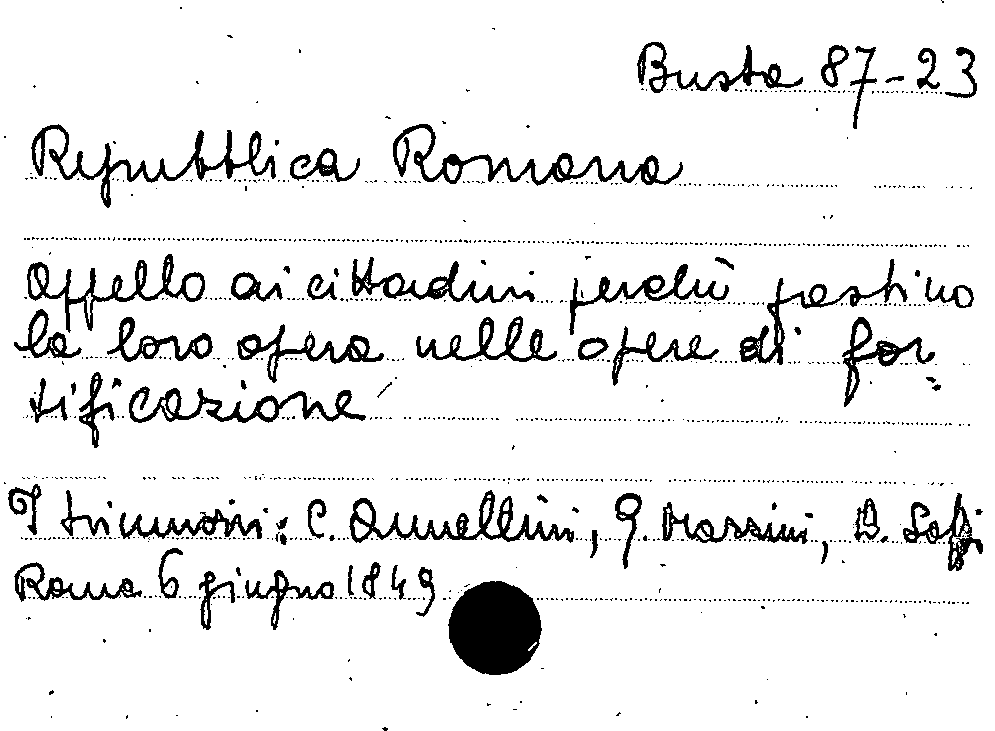 Busta 87-23
Repubblica Romana
Appello ai cittadini perchè prestino
la loro opera nelle opere di for=
tificazione
I triumviri: C. Armellini, G. Mazzini, A. Saffi
Roma 6 giugno 1849